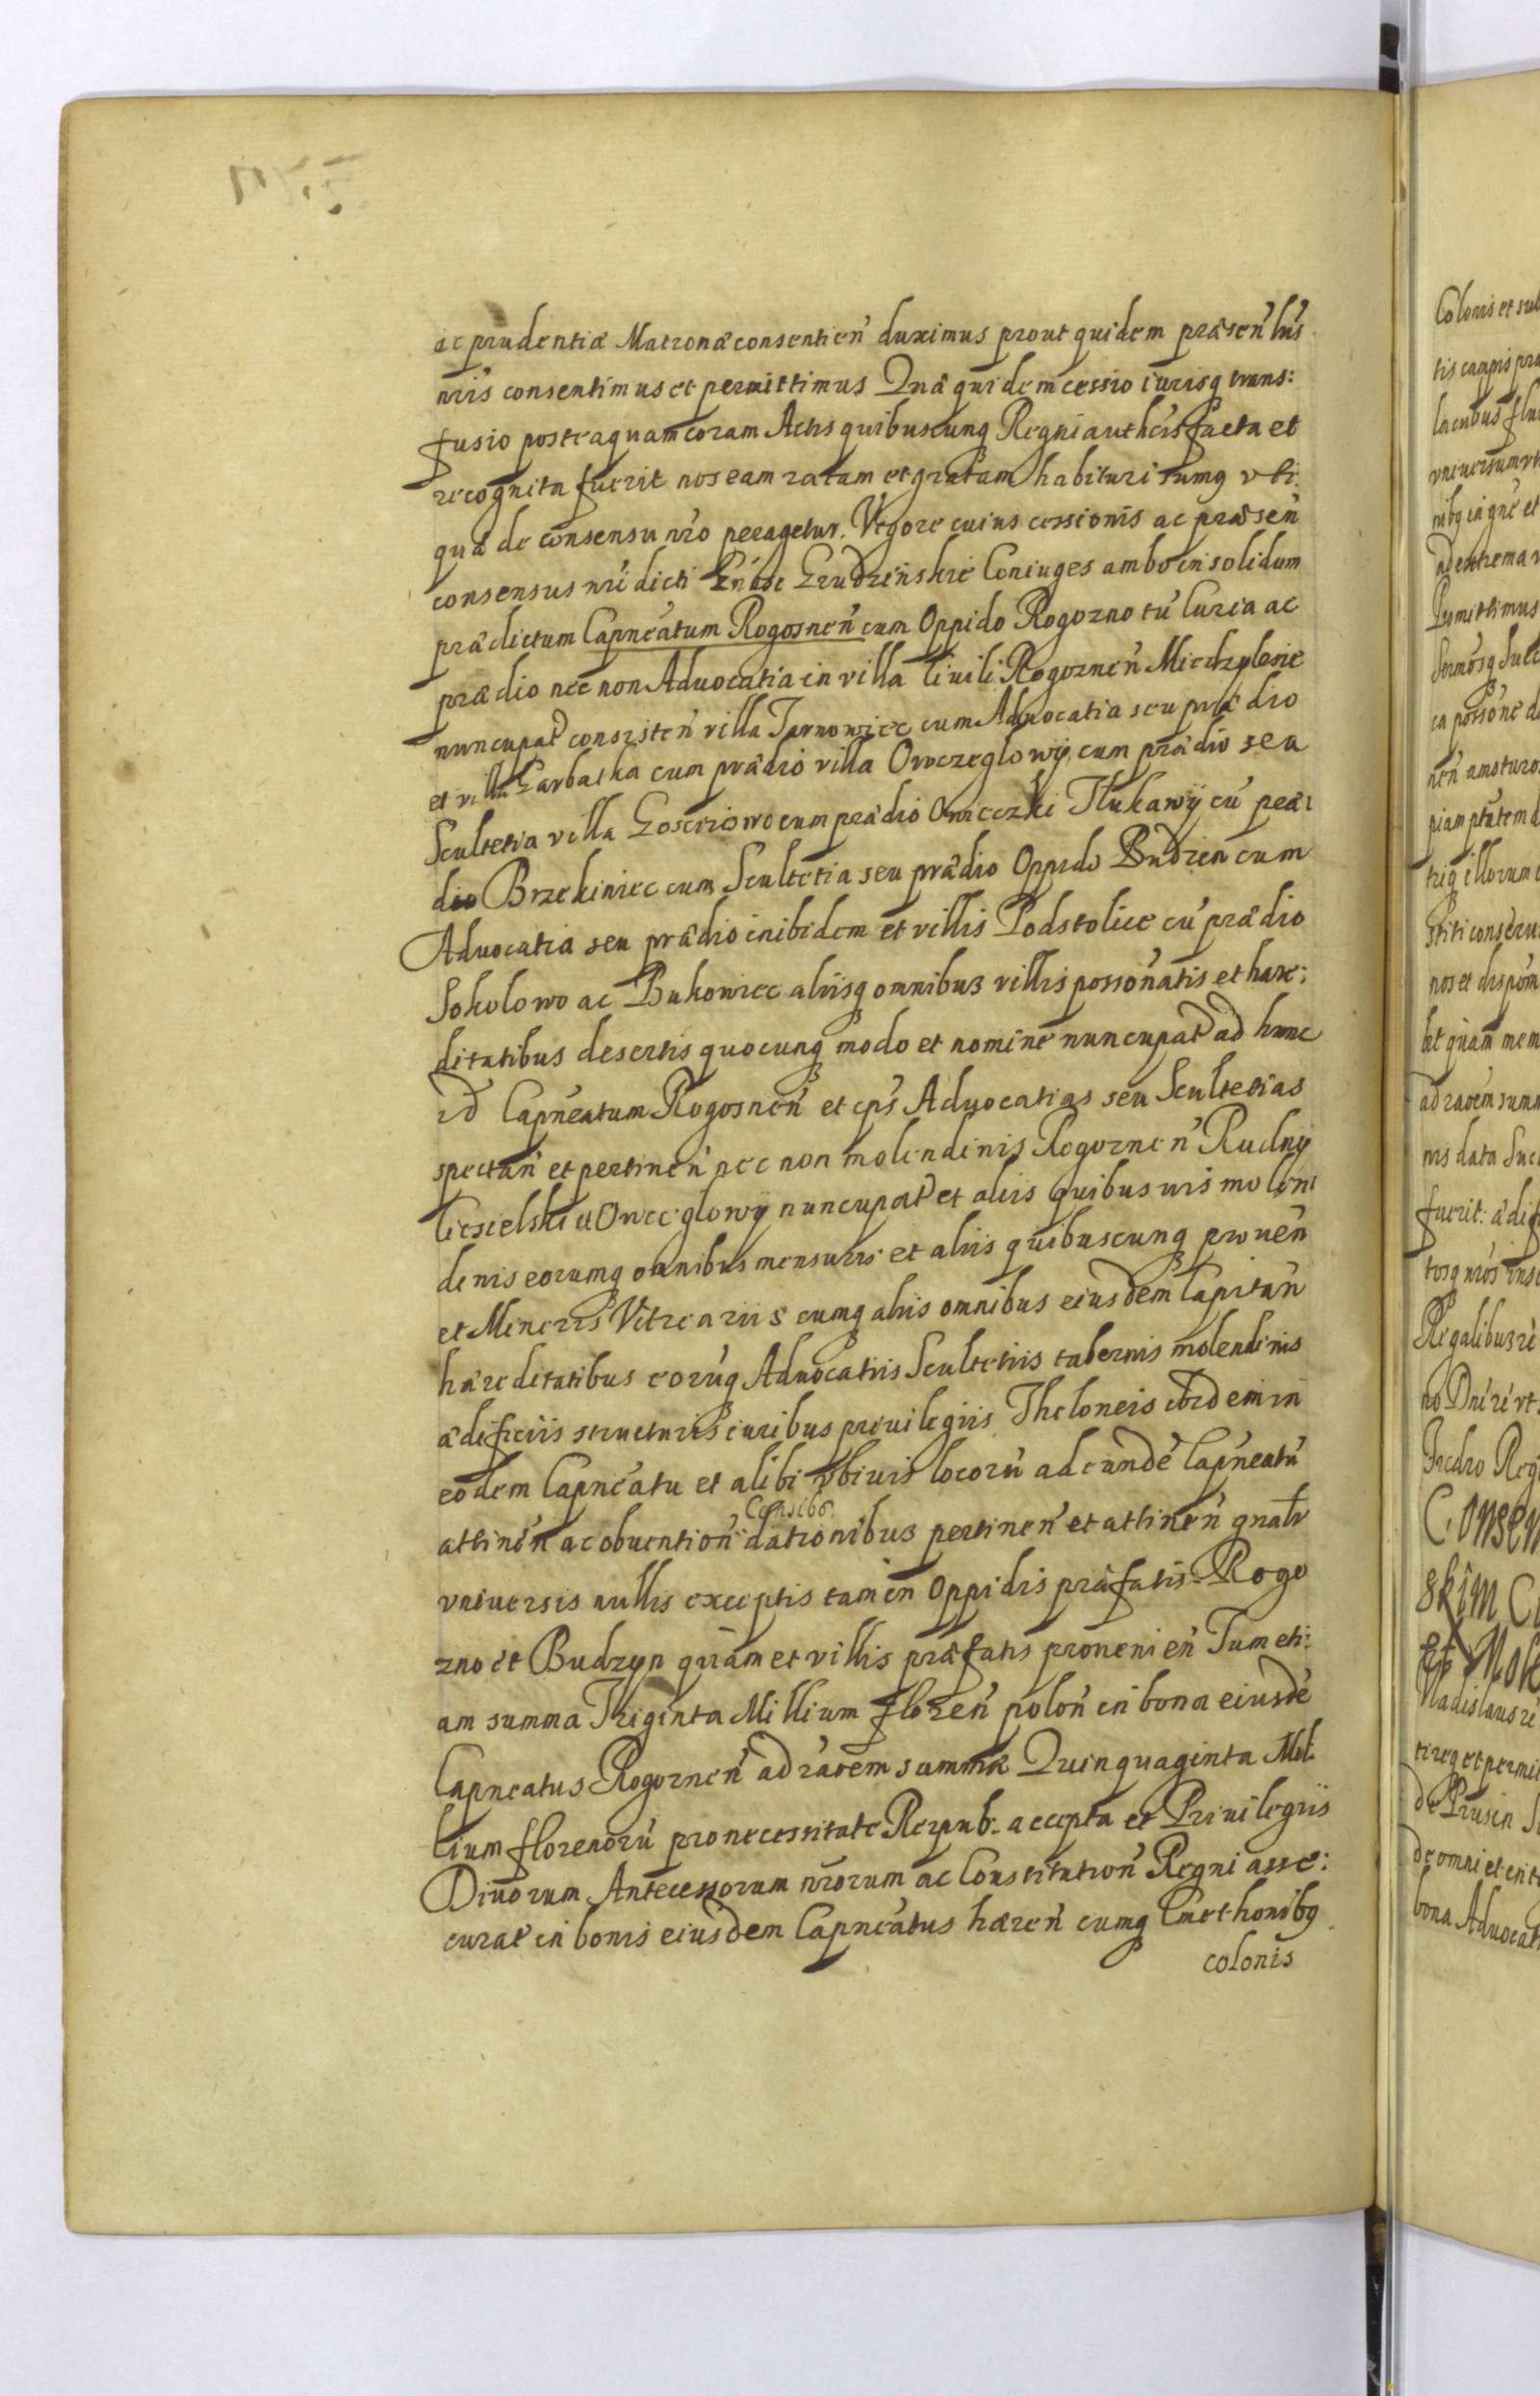 ac prudentiæ Matronæ consentien̄ duximus prout quidem præsen̄ lr̄is
nr̄is consentimus et permittimus Quæ quidem cessio iurisq trans:
fusio posteaquam coram Actis quibuscunq Regni authēis facta et
recognita fuerit nos eam ratam et gratam habituri sumq vti:
quæ de consensu nr̄o peragetur. Vigore cuius cessionis ac præsen̄
consensus nr̄i dicti Gn̄osi Grudzinskie Coniuges ambo in solidum
prædictum Capneātum Rogosnen̄ cum Oppido Rogozno tū Curia ac
prædio nec non Aduocatia in villa Ciuili Rogoznen̄ Miedzylesie
nuncupat consisten̄ villa Tarnowiec cum Aduocatia seu prædio
et villa Garbatka cum prædio villa Owczeglowÿ cum prædio seu
Scultetia villa Gosciejowo cum prædio Owieczki Tlukawÿ cū præ:
dio Brzekiniec cum Scultetia seu prædio Oppido Budzen cum
Aduocatia seu prædio inibidem et villis Podstolice cū prædio
Sokolowo ac Bukowiec aliisq omnibus villis possōnatis et hære:
ditatibus desertis quocunq modo et nomine nuncupat ad hunc
id Capneātum Rogosnen̄ et ep̄s Aduocatias seu Scultetias
spectan̄ et pertinen̄ nec non molendinis Rogoznen̄ Rudnÿ
Ciesielski et Owceglowÿ nuncupat et aliis quibusuis molen:
dinis eorumq omnibus mensuris et aliis quibuscunq prouen̄
et Mineris Vitreariis cumq aliis omnibus eiusdem Capitān
hæreditatibus eorūq Aduocatiis Scultetiis tabernis molendinis
ædificiis structuris iuribus priuilegiis Theloneis ibidem in
eodem Capneātu et alibi vbiuis locorū ad eundē Capneātū
Censibq
attinēn ac obuention̄ dationibus pertinen̄ et attinen̄ gnāl̄r
vniuersis nullis exceptis tam in Oppidis præfatis Rogo
zno et Budzyn quàm et villis præfatis prouenien̄ Tum eti:
am summa Triginta Millium floren̄ polon̄ in bona eiusdē
Capneatus Rogoznen̄ ad rāoem summæ Quinquaginta Mil:
lium florenorū pro necessitate Reipub: accepta et Priuilegiis
Diuorum Antecessorum nr̄orum ac Constitution̄ Regni asse:
curat in bonis eiusdem Capneātus hæren̄ cumq Cmethonibq
colonis
Colonis et sub
tis campis pra
lacubus flu
vniuersum vt
nibq in gn̄e et
ad extrema v
Promittimus
ca possōne d
nen̄ amoturos
piam ptūtem d
triq illorum
nos et dispōm
let quàm mem
ad rāoem sum
nis data Suc
fuerit: ædif
tosq nr̄os
Regalibus
Consen
skim C
Et Mol
Vladislaus
tireq et permi
de Prusin
de omni et
bona Aduocat